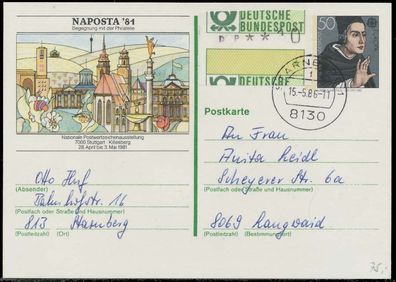 NAPOSTA '81
Begegnung mit der Philatelie
Nationale Postwertzeichenausstellung
7000 Stuttgart - Killesberg
28. April bis 3. Mai 1981
DEUTSCHE
BUNDESPOST
DEUTSCHE
50
15.-5.86-11
8130
Postkarte
An Frau
Anita Heidl
Scheyerer Str. 6a
8069
(Postleitzahl) (Bestimmungsort)
(Postfach oder Straße und Hausnummer)
Otto
(Absender)
Bahnhofstr. 16
(Postfach oder Straße und Hausnummer)
813 Starnberg
(Postleitzahl) (Ort)
75,-